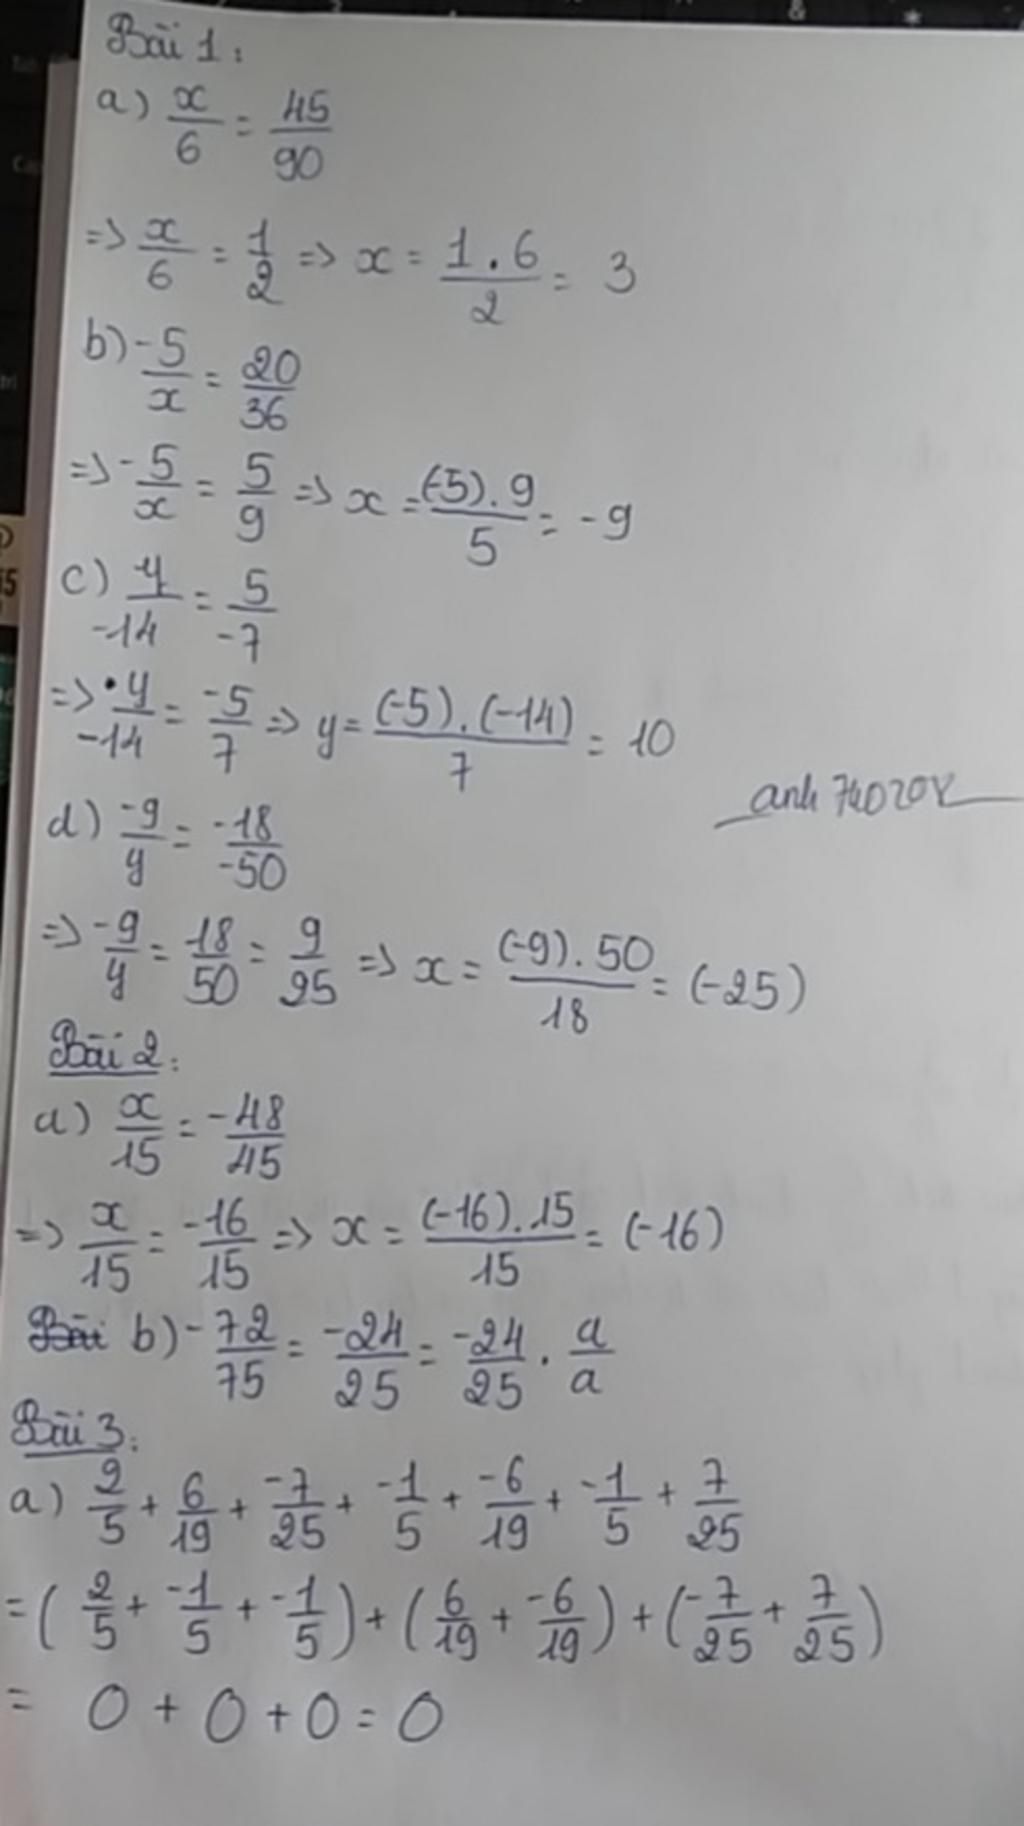 Bài 1:
a) x/6 = 45/90
=> x/6 = 1/2 => x = 1.6/2 = 3
b) -5/x = 20/36
=> -5/x = 5/9 => x = (-5).9/5 = -9
c) y/-14 = 5/-7
=> y/-14 = -5/7 => y = (-5).(-14)/7 = 10
anh
d) -9/y = -18/-50
=> -9/y = 18/50 = 9/25 => x = (-9).50/18 = (-25)
Bài 2:
a) x/15 = -48/45
=> x/15 = -16/15 => x = (-16).15/15 = (-16)
Bài b) -72/75 = -24/25 = -24/25 . a/a
Bài 3:
a) 2/5 + 6/19 + -7/25 + -1/5 + -6/19 + -1/5 + 7/25
= (2/5 + -1/5 + -1/5) + (6/19 + -6/19) + (-7/25 + 7/25)
= 0 + 0 + 0 = 0